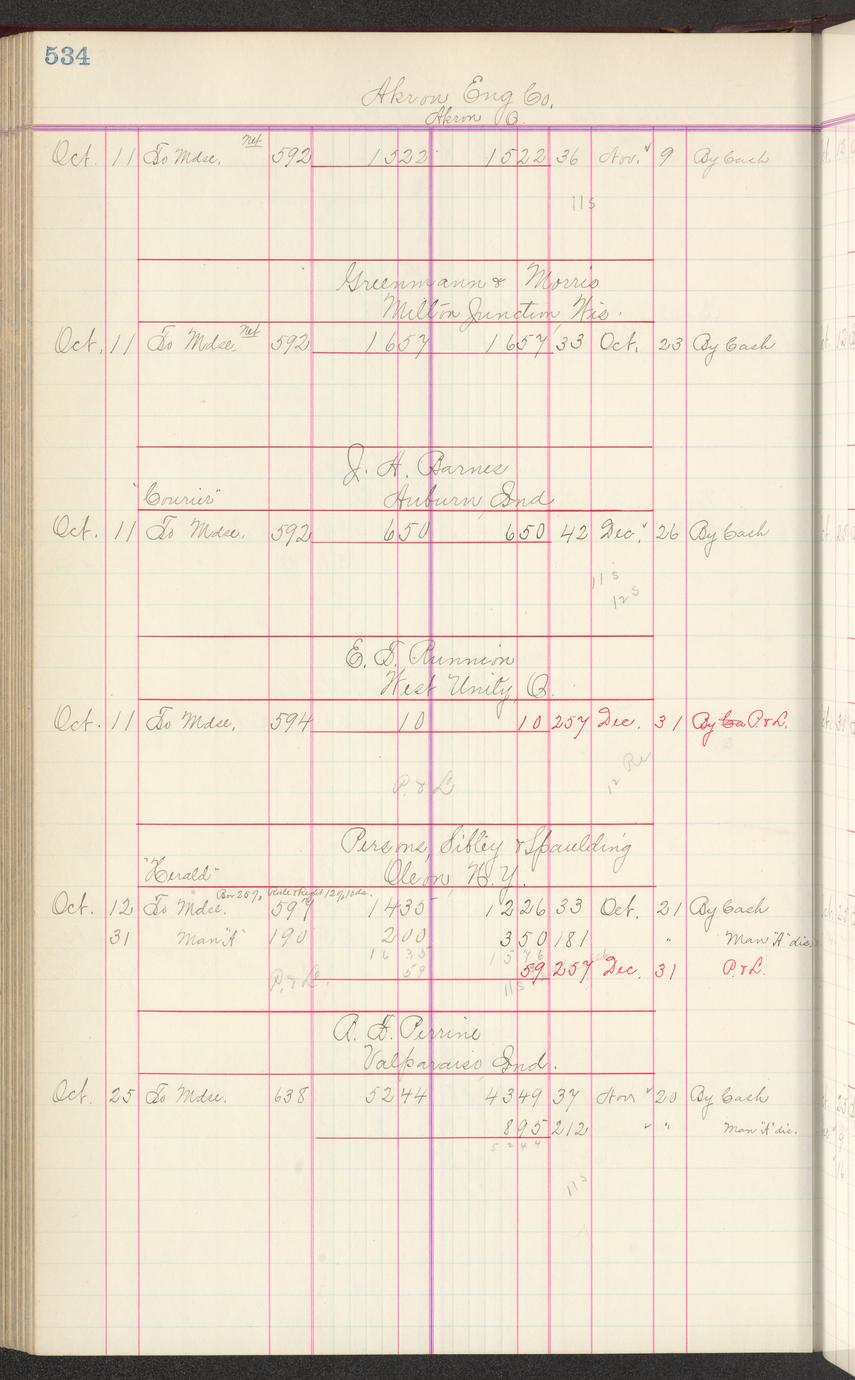 534
Akron Eng Co.
Akron O.
Oct. 11 To Mdse. Net 592 1522 1522 36 Nov. 9 By Cash
11s
Greenmann & Morris
Milton Junction Wis.
Oct. 11 To Mdse. Net 592 1657 1657 33 Oct. 23 By Cash
J. H. Barnes
"Courier" Auburn Ind
Oct. 11 To Mdse. 592 650 650 42 Dec. 26 By Cash
11 s
12 s
E. D. Runnion
West Unity, O.
Oct. 11 To Mdse. 594 10 10 257 Dec. 31 By Ca P & L.
P. & L 12
Persons, Sibley & Spaulding
"Herald" Olean N.Y.
Box 25% Rule & Right 12% 10ds.
Oct. 12 To Mdse. 597 1435 1226 33 Oct. 21 By Cash
31 Man "A" 190 200 350 181 " Man "A" dis.
1635 1576
P. & L. 59 59 257 Dec. 31 P. & L.
11s
A. F. Perrine
Valparaiso, Ind.
Oct. 25 To Mdse. 638 5244 4349 37 Nov 20 By Cash
895 212 " " Man "A" dis.
5244
11s